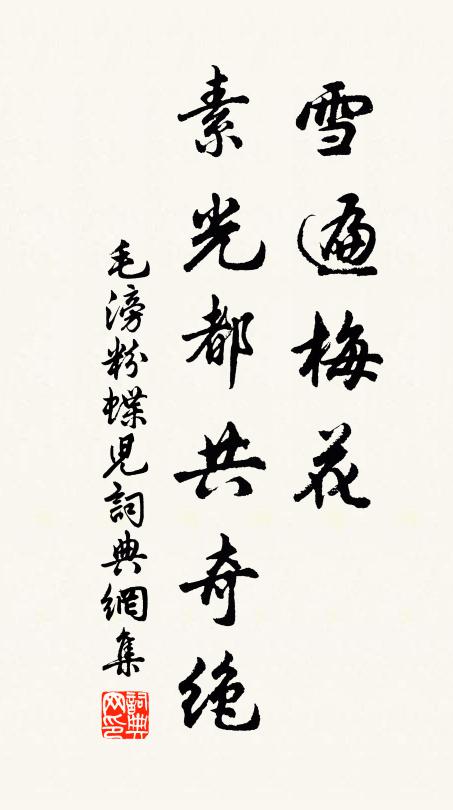 雪遍梅花
素光都共奇绝
毛滂粉蝶児詞典網集
詞典
网印